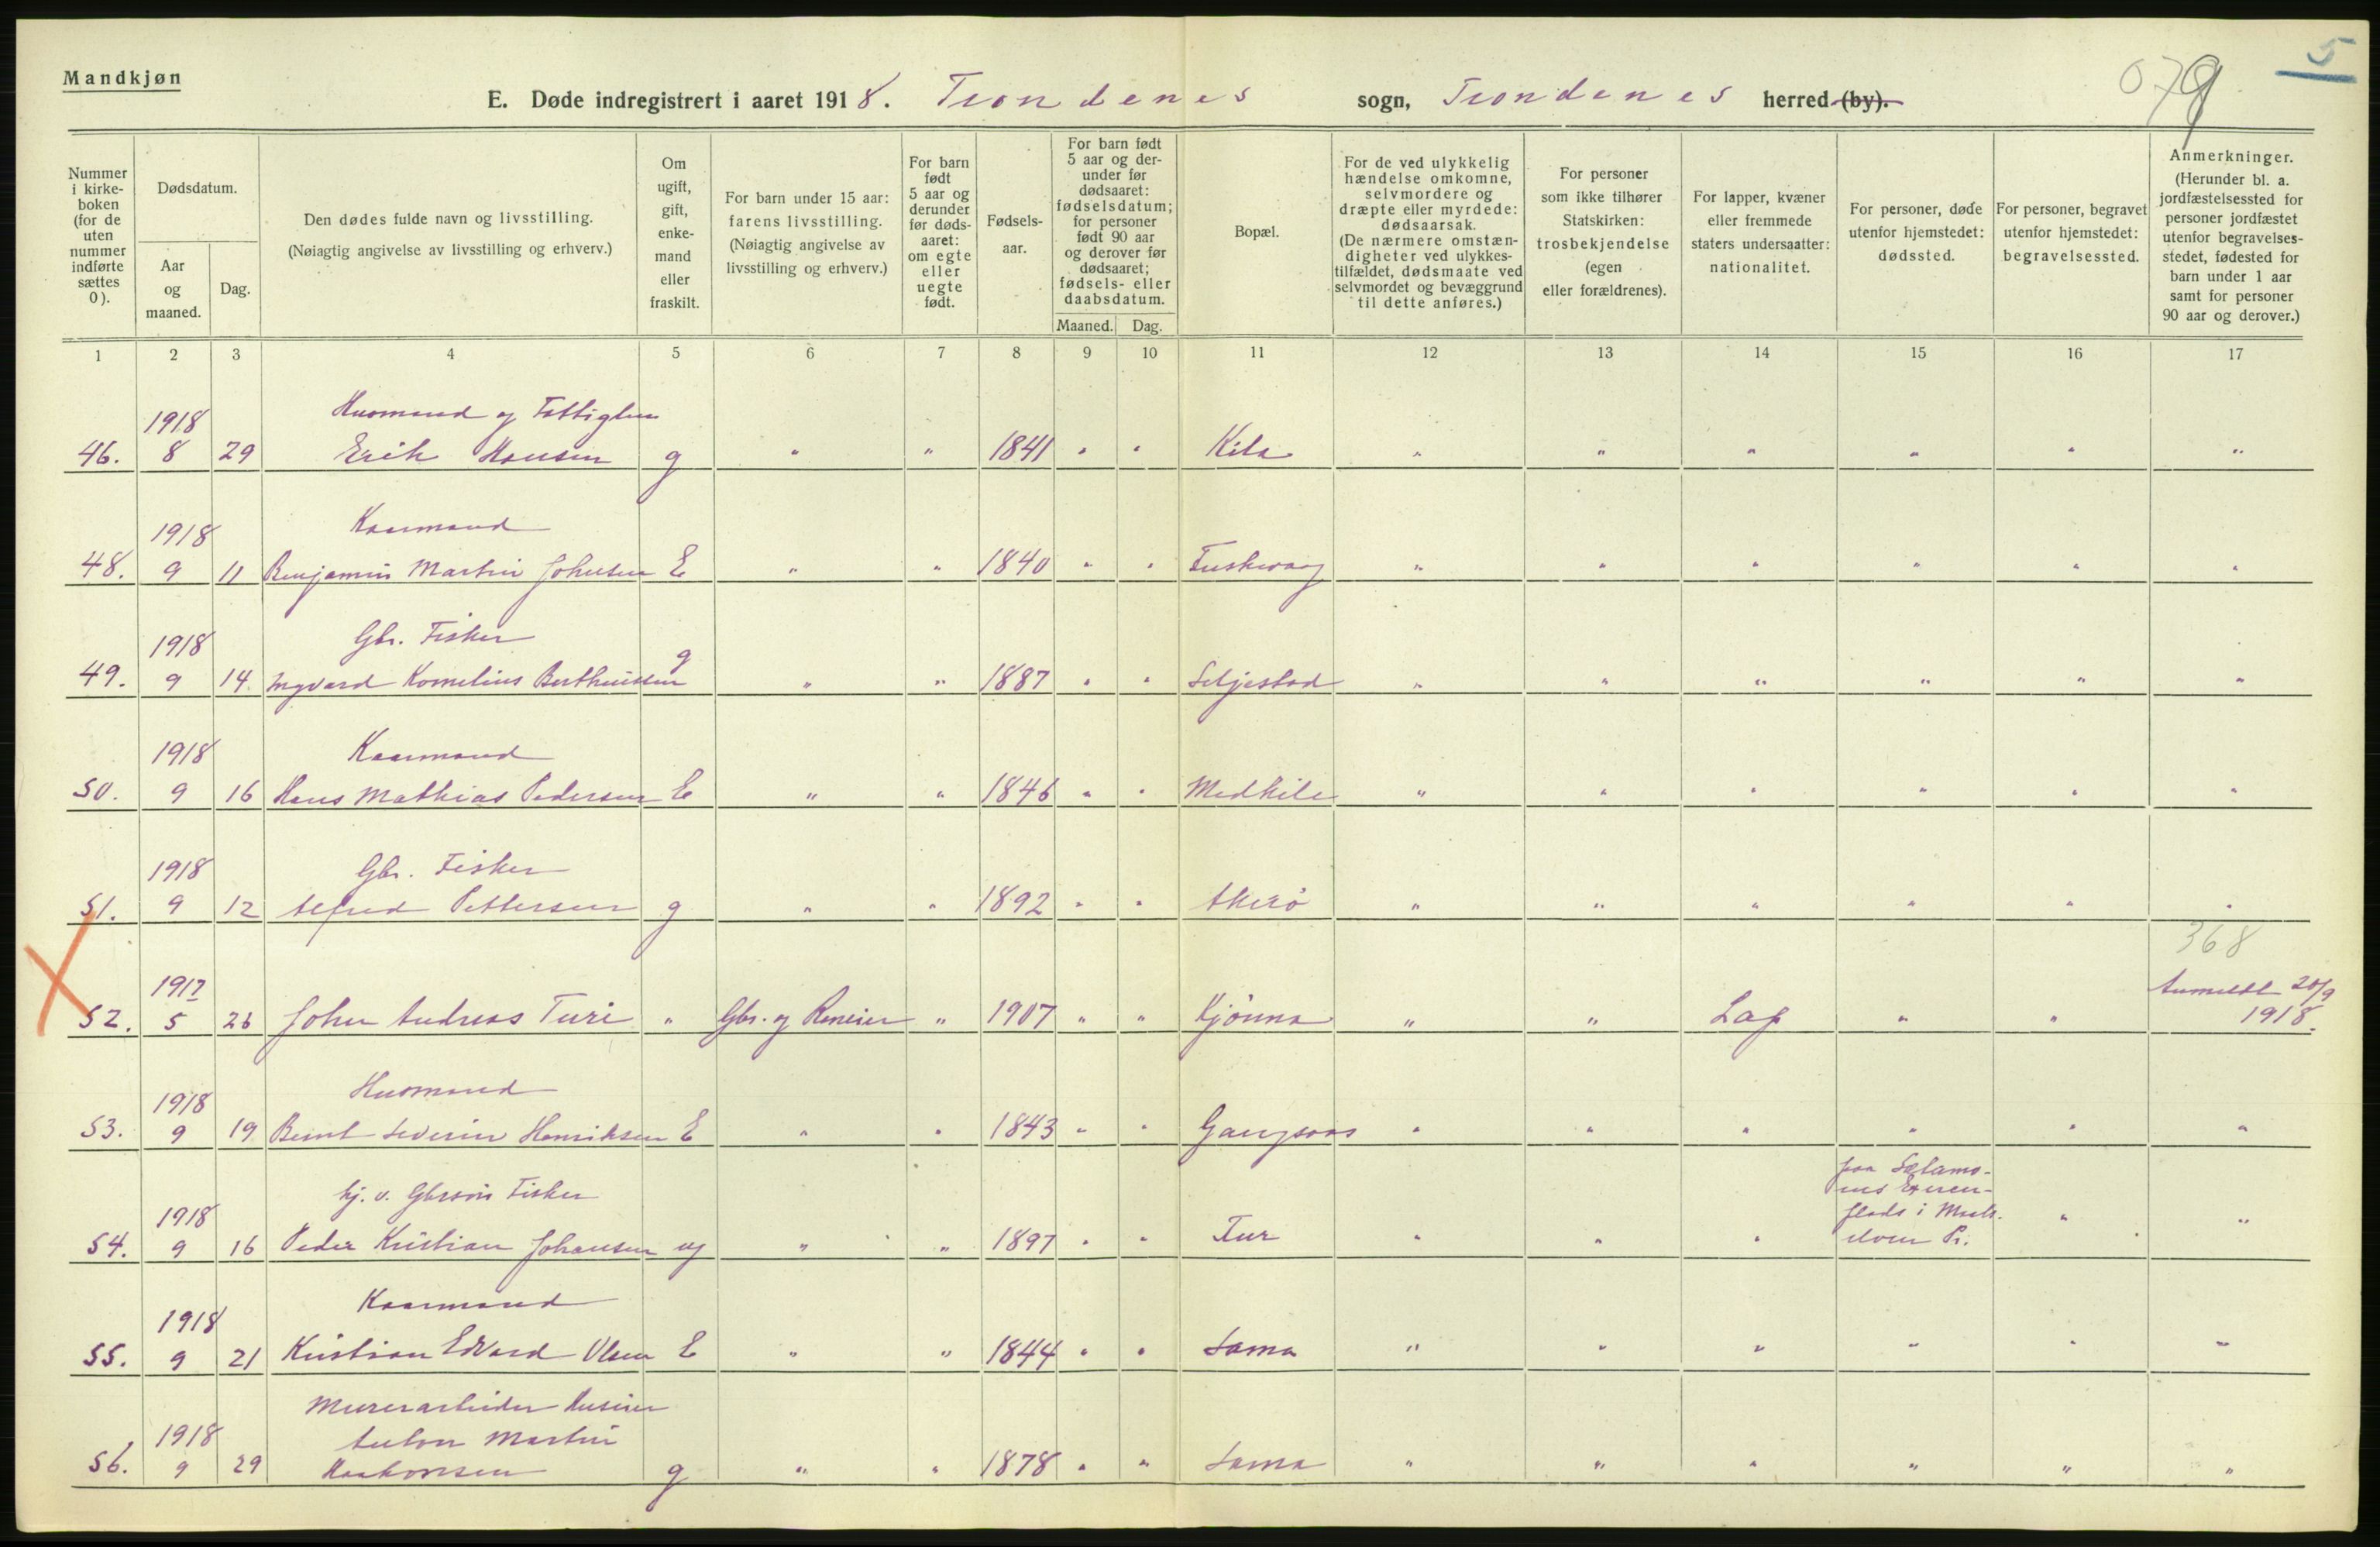 Mandkjøn
5
079
E. Døde indregistrert i aaret 1918. Trondenes sogn, Trondenes herred (by).
Nummer i kirkeboken (for de uten nummer indførte sættes 0).
Dødsdatum.
Aar og maaned.
Dag.
Den dødes fulde navn og livsstilling. (Nøiagtig angivelse av livsstilling og erhverv.)
Om ugift, gift, enkemand eller fraskilt.
For barn under 15 aar: farens livsstilling. (Nøiagtig angivelse av livsstilling og erhverv.)
For barn født 5 aar og derunder før dødsaaret: om egte eller uegte født.
Fødselsaar.
For barn født 5 aar og derunder før dødsaaret: fødselsdatum; for personer født 90 aar og derover før dødsaaret; fødsels- eller daabsdatum.
Maaned. Dag.
Bopæl.
For de ved ulykkelig hændelse omkomne, selvmordere og dræpte eller myrdede: dødsaarsak. (De nærmere omstændigheter ved ulykkestilfældet, dødsmaate ved selvmordet og bevæggrund til dette anføres.)
For personer som ikke tilhører Statskirken: trosbekjendelse (egen eller forældrenes).
For lapper, kvæner eller fremmede staters undersaatter: nationalitet.
For personer, døde utenfor hjemstedet: dødssted.
For personer, begravet utenfor hjemstedet: begravelsessted.
Anmerkninger. (Herunder bl. a. jordfæstelsessted for personer jordfæstet utenfor begravelsesstedet, fødested for barn under 1 aar samt for personer 90 aar og derover.)
1 2 3 4 5 6 7 8 9 10 11 12 13 14 15 16 17
1918 Husmand og
46. 8 29 Erik Hansen g " " 1841 " " Kila " " " " " "
1918 Kaarmand
48. 9 11 Benjamin Martin Johnsen E " " 1840 " " " " " " " "
1918 Gbr. Fisker
49. 9 14 Ingvard Kornelius Berthinssen g " " 1887 " " Seljestad " " " " " "
1918 Kaarmand
50. 9 16 Hans Mathias Pedersen E " " 1846 " " Medkile " " " " " "
1918 Gbr. Fisker
51. 9 12 Alfred Pettersen g " " 1892 " " Akerö " " " " " "
368
1917 Anmeldt 20/9
52. 5 26 John Andreas Turi " Gbr. og " 1907 " " Kjönna " " Lap " " 1918.
1918 Husmand
53. 9 19 Bernt Severin Henriksen E " " 1843 " " Gangsaas " " " " " "
1918 hj. v. Fisker paa
54. 9 16 Peder Kristian Johansen ug " " 1897 " " " " " " "
1918 Kaarmand
55. 9 21 Kristian Edvard Olsen E " " 1844 " " Sama " " " " " "
Murerarbeider
1918 Anton Martin
56. 9 29 Haakonsen g " " 1878 " " Sama " " " " " "